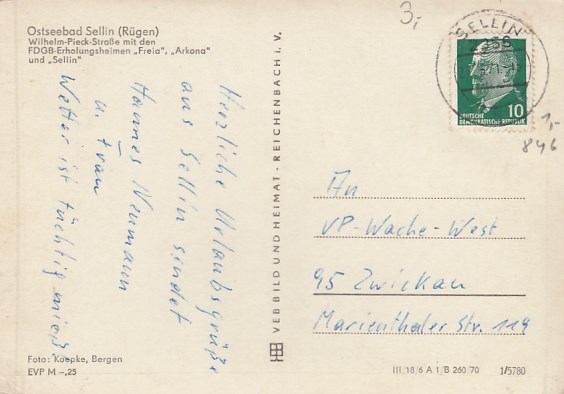 Ostseebad Sellin (Rügen)
Wilhelm-Pieck-Straße mit den
FDGB-Erholungsheimen „Freia", „Arkona"
und „Sellin"
Herzliche Urlaubsgrüße
aus Sellin sendet
Hannes Neumann
u. Frau
Wetter ist tüchtig mieß.
Foto: Koepke, Bergen
EVP M –,25
VEB BILD UND HEIMAT · REICHENBACH i. V.
3,-
SELLIN
DEUTSCHE
DEMOKRATISCHE REPUBLIK
10
1,-
846
An
VP-Wache-West
95 Zwickau
Marienthaler Str. 119
III/18/6 A 1/B 260/70 1/5780